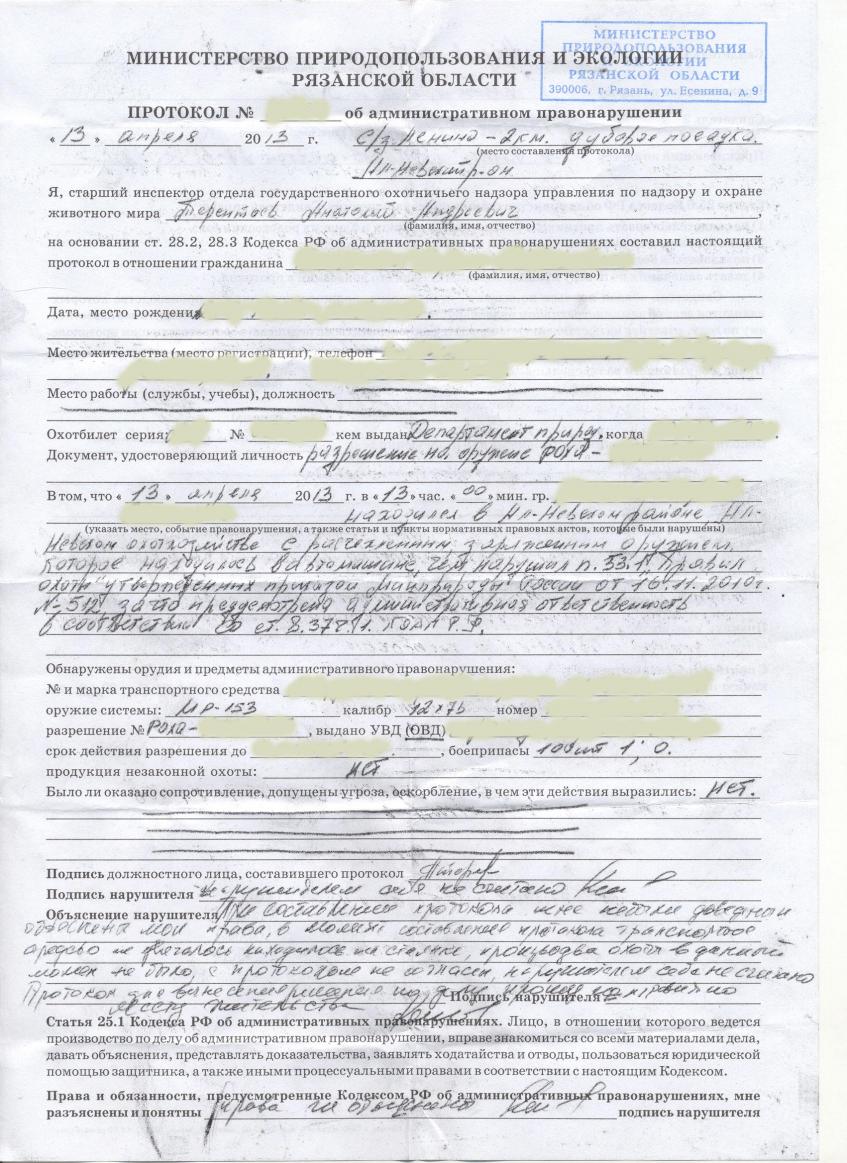 МИНИСТЕРСТВО
ПРИРОДОПОЛЬЗОВАНИЯ
И ЭКОЛОГИИ
РЯЗАНСКОЙ ОБЛАСТИ
390006, г. Рязань, ул. Есенина, д. 9
МИНИСТЕРСТВО ПРИРОДОПОЛЬЗОВАНИЯ И ЭКОЛОГИИ
РЯЗАНСКОЙ ОБЛАСТИ
ПРОТОКОЛ № об административном правонарушении
« 13 » апреля 2013 г. с/з. Ленино - 2км. дубовая посадка.
(место составления протокола)
Ал-Невский р-он
Я, старший инспектор отдела государственного охотничьего надзора управления по надзору и охране
животного мира Терентьев Анатолий Андреевич ,
(фамилия, имя, отчество)
на основании ст. 28.2, 28.3 Кодекса РФ об административных правонарушениях составил настоящий
протокол в отношении гражданина
(фамилия, имя, отчество)
Дата, место рождения
Место жительства (место регистрации), телефон
Место работы (службы, учебы), должность
Охотбилет серия: № кем выдан Департамент природ. когда
Документ, удостоверяющий личность разрешение на оружие РОХа-
В том, что « 13 » апреля 2013 г. в « 13 » час. « 00 » мин. гр.
находился в Ал-Невском районе Ал-
(указать место, событие правонарушения, а также статьи и пункты нормативных правовых актов, которые были нарушены)
Невском охотхозяйстве с расчехленным заряженным оружием,
которое находилось в автомашине, чем нарушил п. 53.1 Правил
охоты утвержденных приказом Минприроды России от 16.11.2010г.
№ 512, за что предусмотрена административная ответственность
в соответствии со ст. 8.37 ч.1. КоАП Р.Ф.
Обнаружены орудия и предметы административного правонарушения:
№ и марка транспортного средства
оружие системы: МР-153 калибр 12х76 номер
разрешение № РОХа- , выдано УВД (ОВД)
срок действия разрешения до , боеприпасы 10 шт
продукция незаконной охоты: нет
Было ли оказано сопротивление, допущены угроза, оскорбление, в чем эти действия выразились: Нет.
Подпись должностного лица, составившего протокол
Подпись нарушителя Нарушителем себя не считаю
Объяснение нарушителя При составлении протокола мне небыли доведены и
объяснены мои права, в момент составления протокола транспортное
средство не двигалось находилось на стоянке, производва охоты в данный
момен не было, с протоколом не согласен, нарушителем себя не считаю
Протокол для вынесения решения по делу прошу направить по
Подпись нарушителя
месту жительства
Статья 25.1 Кодекса РФ об административных правонарушениях. Лицо, в отношении которого ведется
производство по делу об административном правонарушении, вправе знакомиться со всеми материалами дела,
давать объяснения, представлять доказательства, заявлять ходатайства и отводы, пользоваться юридической
помощью защитника, а также иными процессуальными правами в соответствии с настоящим Кодексом.
Права и обязанности, предусмотренные Кодексом РФ об административных правонарушениях, мне
разъяснены и понятны Права не объяснено подпись нарушителя